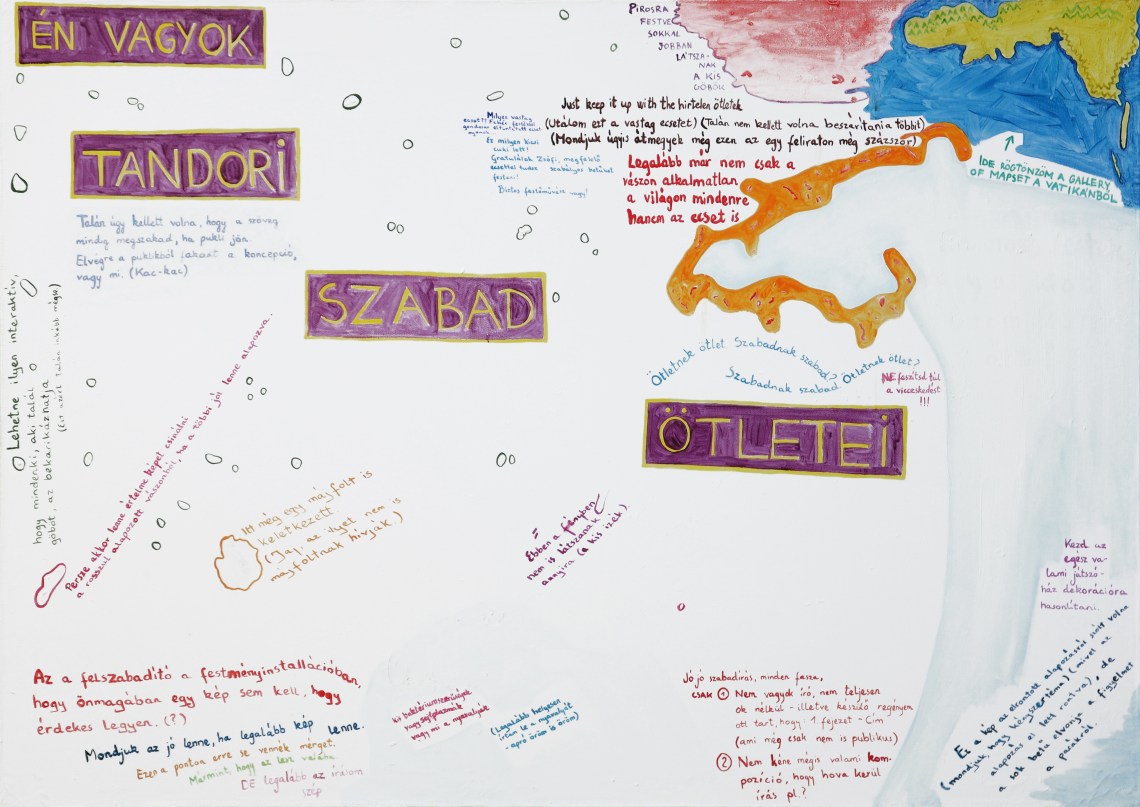 ÉN VAGYOK
TANDORI
SZABAD
ÖTLETEI
PIROSRA
FESTVE
SOKKAL
JOBBAN
LÁTSZA-
NAK
A KIS
GÖBÖK
Just keep it up with the hirtelen ötletek
(Utálom ezt a vastag ecsetet) (Talán nem kellett volna beszárítani a többit)
(Mondjuk úgyis átmegyek még ezen az egy feliraton még százszor)
Legalább már nem csak a
vászon alkalmatlan
a világon mindenre
hanem az ecset is
IDE RÖGTÖNZÖM A GALLERY
OF MAPSET A VATIKÁNBÓL
Milyen vastag
És milyen kicsi
lett!
Gratulálok Zsófi, megfelelő
ecsettel tudsz szabályos betűket
festeni!
Biztos festőművész vagy!
Talán úgy kellett volna, hogy a szöveg
mindig megszakad, ha pukli jön.
Elvégre a puklikból fakadt a koncepció,
vagy mi. (Kac-kac)
Lehetne ilyen interaktív,
hogy mindenki, aki talál
göböt, az bekarikázhatja
(Ezt azért talán inkább mégse)
Persze akkor lenne értelme képet csinálni
a rosszul alapozott vászonból, ha a többi jól lenne alapozva.
Ötletnek ötlet Szabadnak szabad?
Szabadnak szabad Ötletnek ötlet?
NE feszítsd túl
a vicceskedést
!!!
Itt még egy májfolt is
keletkezett.
(Jaj, az ilyet nem is
májfoltnak hívják)
Ebben a fényben
nem is látszanak
annyira (a kis izék).
Kezd az
egész va-
lami játszó-
ház dekorációra
hasonlítani.
Az a felszabadító a festményinstallációban,
hogy önmagában egy kép sem kell, hogy
érdekes legyen. (?)
Mondjuk az jó lenne, ha legalább kép lenne.
Ezen a ponton erre se vennék mérget.
Mármint, hogy az lesz valaha
DE legalább az írásom
szép
kis baktériumszerűségek
vagy
vagy mi a nyavalyák
(Legalább helyesen
írtam le a nyavalyát
- apró öröm is öröm)
Jó jó szabadírás, minden fasza,
CSAK ① Nem vagyok író, nem teljesen
ok nélkül - illetve készülő regényem
ott tart, hogy: 1 fejezet - Cím
(ami még csak nem is publikus)
② Nem kéne mégis valami kom-
pozíció, hogy hova kerül
írás pl.?
Ez a kép az elrontott alapozásról szólt volna
(mondjuk, hogy kényszertéma) (mivel az
alapozás el lett rontva), de
a sok betű elvonja a figyelmet
a pacákról.